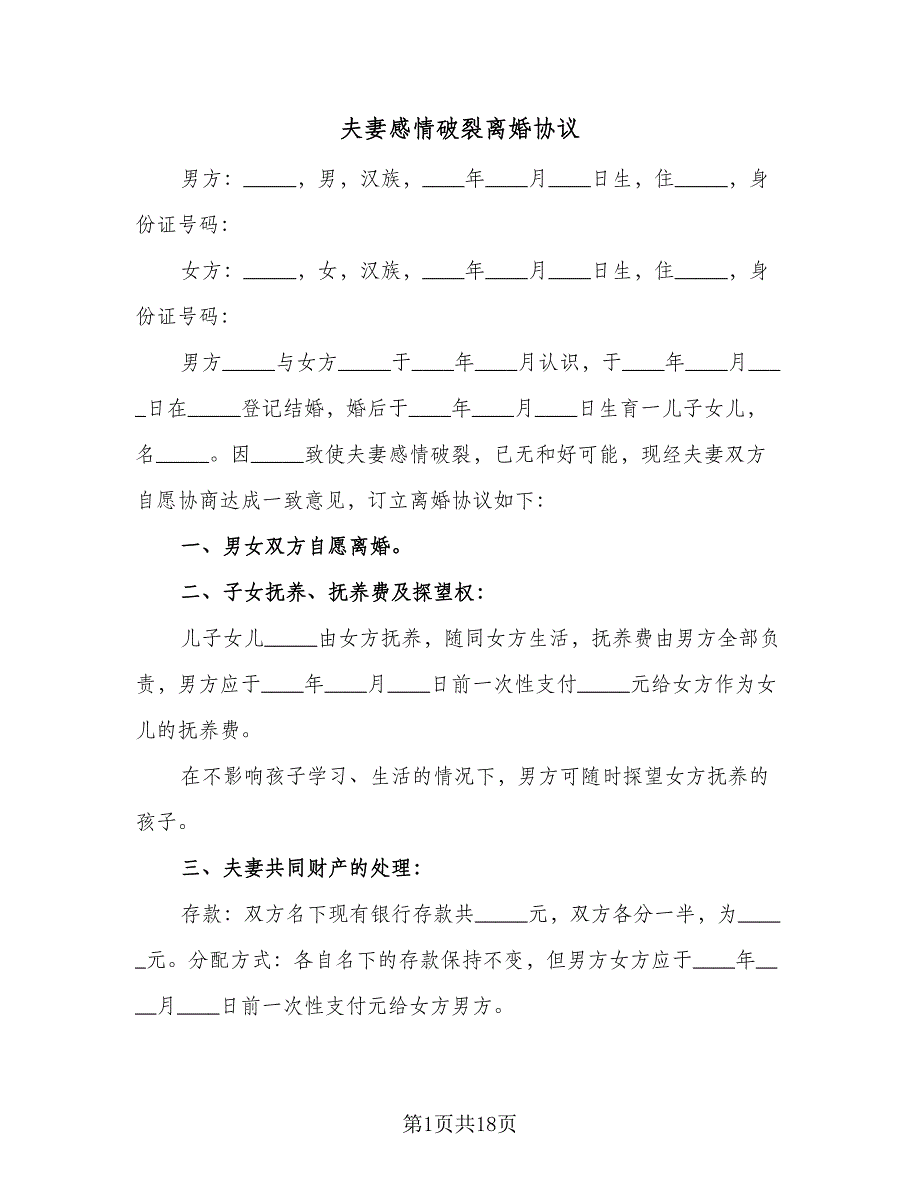 夫妻感情破裂离婚协议
男方：_____，男，汉族，____年____月____日生，住_____，身
份证号码：
女方：_____，女，汉族，____年____月____日生，住_____，身
份证号码：
男方_____与女方_____于____年____月认识，于____年____月___
_日在_____登记结婚，婚后于____年____月____日生育一儿子女儿，
名_____。因_____致使夫妻感情破裂，已无和好可能，现经夫妻双方
自愿协商达成一致意见，订立离婚协议如下：
一、男女双方自愿离婚。
二、子女抚养、抚养费及探望权：
儿子女儿_____由女方抚养，随同女方生活，抚养费由男方全部负
责，男方应于____年____月____日前一次性支付_____元给女方作为女
儿的抚养费。
在不影响孩子学习、生活的情况下，男方可随时探望女方抚养的
孩子。
三、夫妻共同财产的处理：
存款：双方名下现有银行存款共_____元，双方各分一半，为____
_元。分配方式：各自名下的存款保持不变，但男方女方应于____年__
__月____日前一次性支付元给女方男方。
第1页共18页